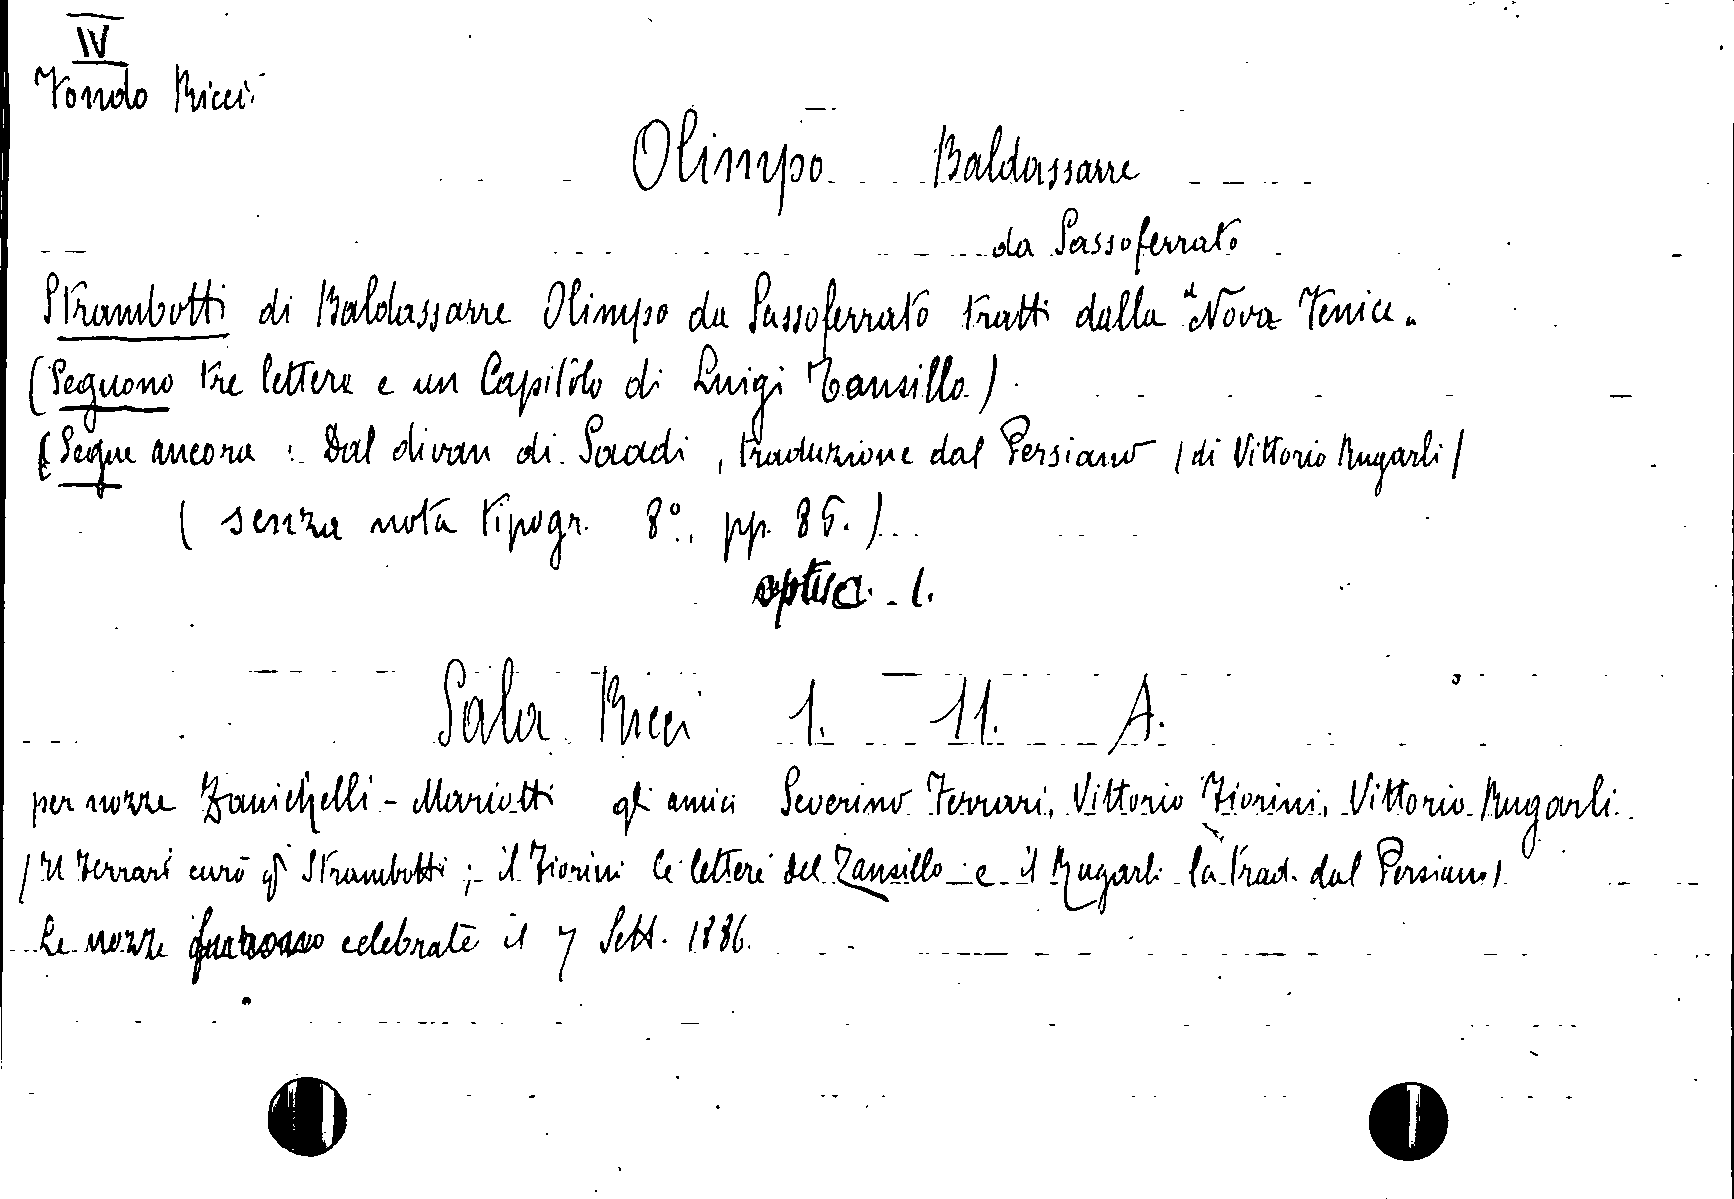 IV
Fondo Ricci
Olimpo Baldassarre
da Sassoferrato
Strambotti di Baldassarre Olimpo da Sassoferrato tratti dalla "Nova Fenice"
(Seguono tre lettere e un Capitolo di Luigi Tansillo)
(Segue ancora: Dal divan di Saadi, traduzione dal Persiano (di Vittorio Rugarli)
( senza nota tipogr. 8°, pp. 85.)
Sala Ricci 1. 11. A.
per nozze Zanichelli - Mariotti gli amici Severino Ferrari, Vittorio Fiorini, Vittorio Rugarli.
(Il Ferrari curò gli Strambotti; il Fiorini le lettere del Tansillo e il Rugarli la trad. dal Persiano)
Le nozze furono celebrate il 7 Sett. 1886.